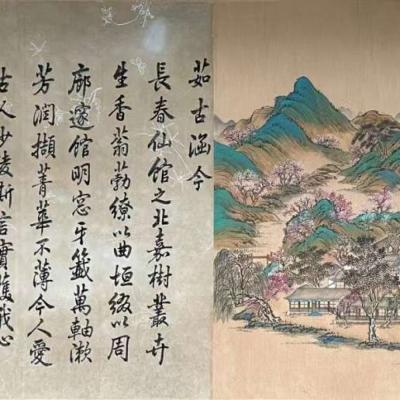 茹古涵今
長春仙館之北嘉樹叢卉
生香蓊勃繚以曲垣綴以周
廊邃館明窓牙籤萬軸漱
芳潤擷菁華不薄今人愛
古人少陵斯言實獲我心